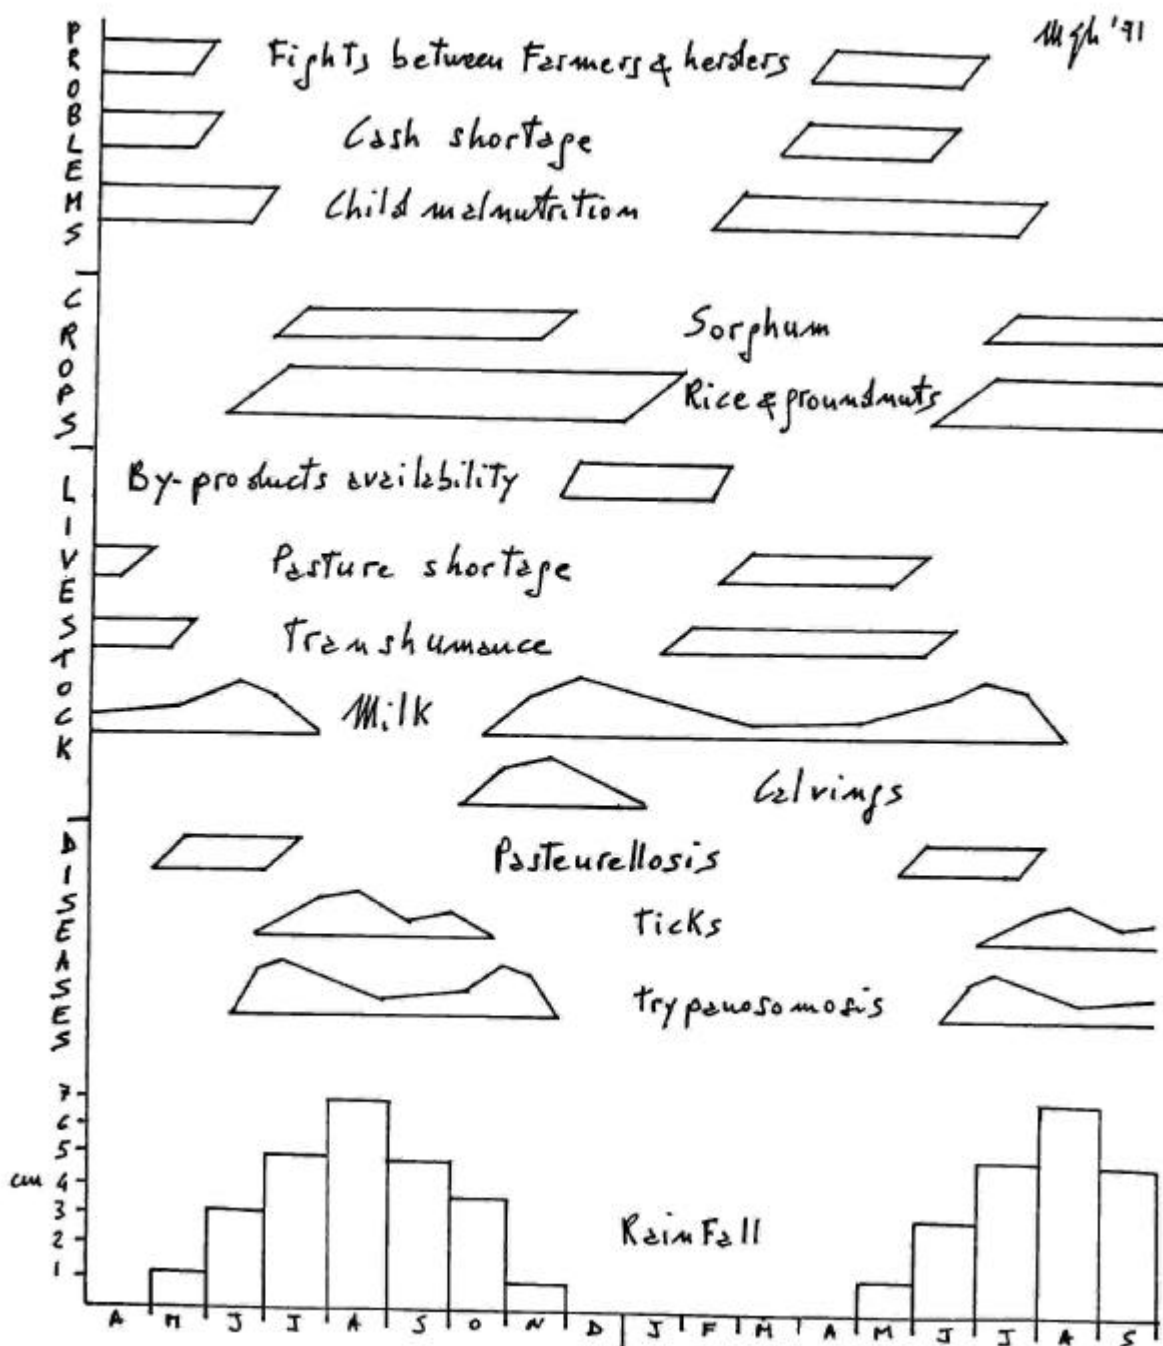 Mgh '91
PROBLEMS
Fights between Farmers & herders
Cash shortage
Child malnutrition
CROPS
Sorghum
Rice & groundnuts
LIVESTOCK
By-products availability
Pasture shortage
Transhumance
Milk
Calvings
DISEASES
Pasteurellosis
Ticks
Trypanosomosis
7
6
5
cm 4
3
2
1
RainFall
A M J J A S O N D J F M A M J J A S